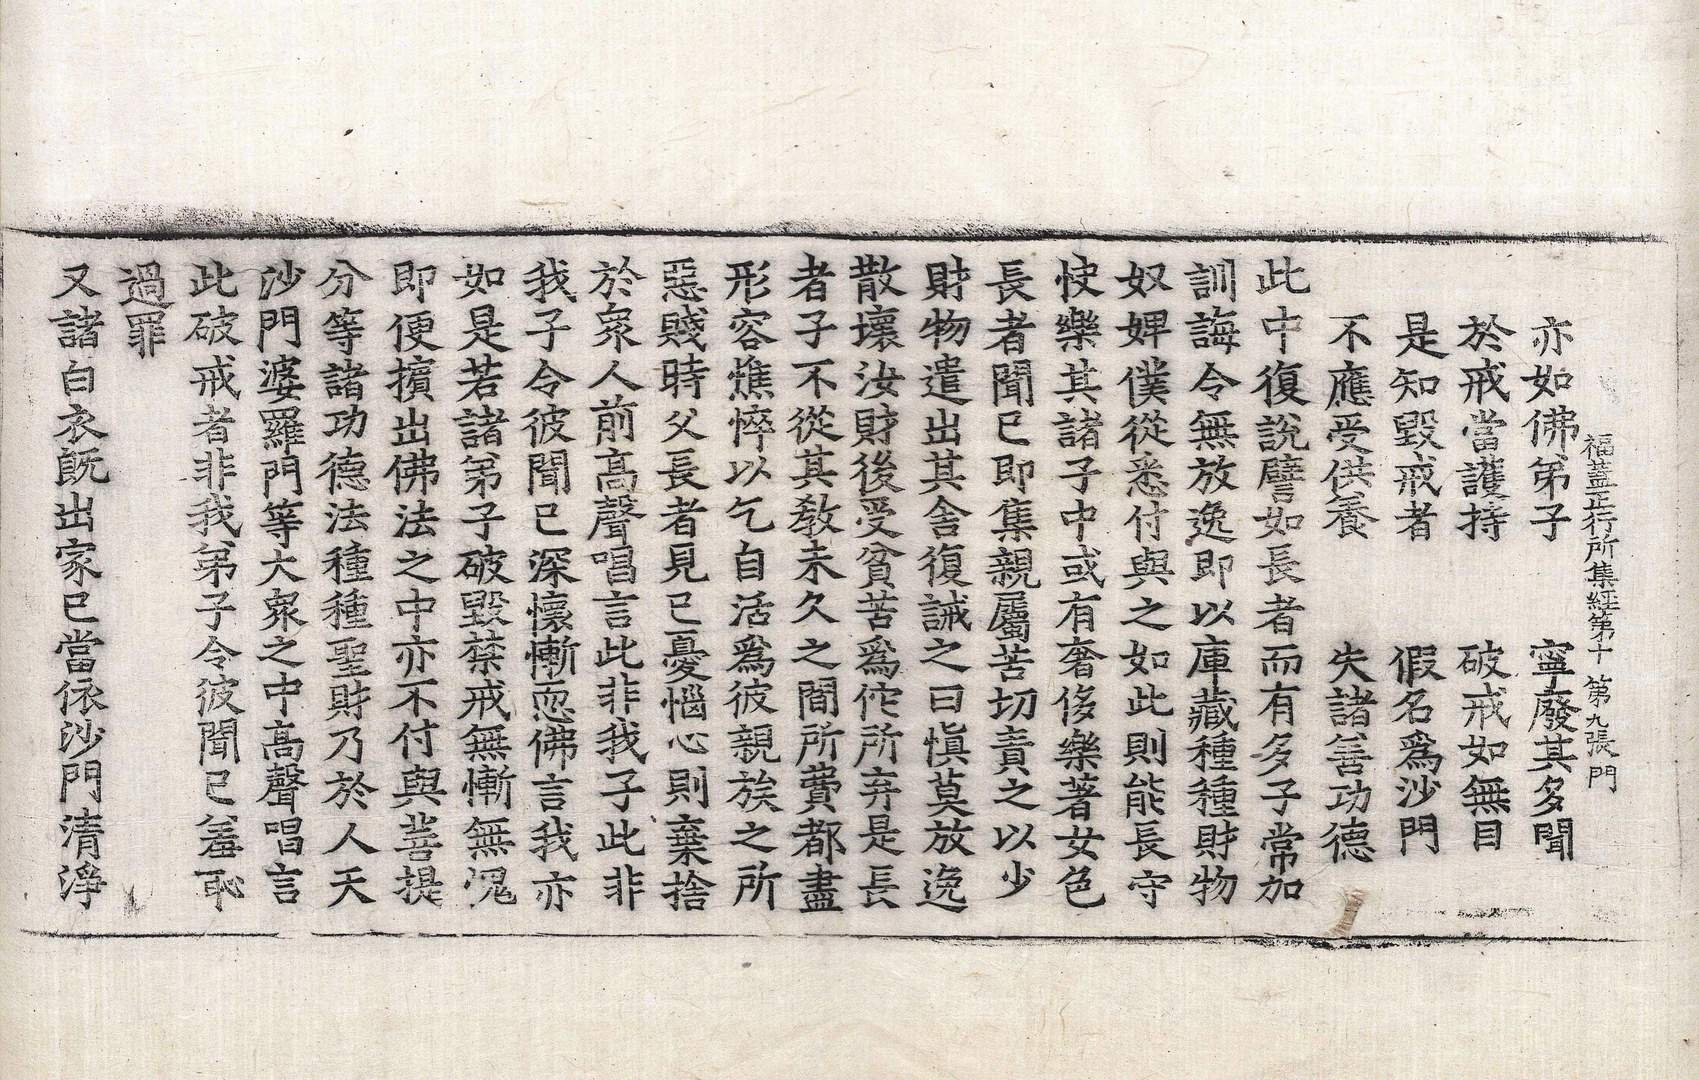 福蓋正行所集經第十 第九張 門
亦如佛弟子 寧廢其多聞
於戒當護持 破戒如無目
是知毀戒者 假名爲沙門
不應受供養 失諸善功德
此中復說譬如長者而有多子常加
訓誨令無放逸即以庫藏種種財物
奴婢僕從悉付與之如此則能長守
快樂其諸子中或有奢侈樂著女色
長者聞已即集親屬苦切責之以少
財物遣出其舍復誡之曰愼莫放逸
散壞汝財後受貧苦爲佗所弃是長
者子不從其教未久之間所費都盡
形容憔悴以乞自活爲彼親族之所
惡賤時父長者見已憂惱心則棄捨
於衆人前高聲唱言此非我子此非
我子令彼聞已深懷慚恧佛言我亦
如是若諸弟子破毀禁戒無慚無愧
即便擯出佛法之中亦不付與菩提
分等諸功德法種種聖財乃於人天
沙門婆羅門等大衆之中高聲唱言
此破戒者非我弟子令彼聞已羞恥
過罪
又諸白衣旣出家已當依沙門清淨